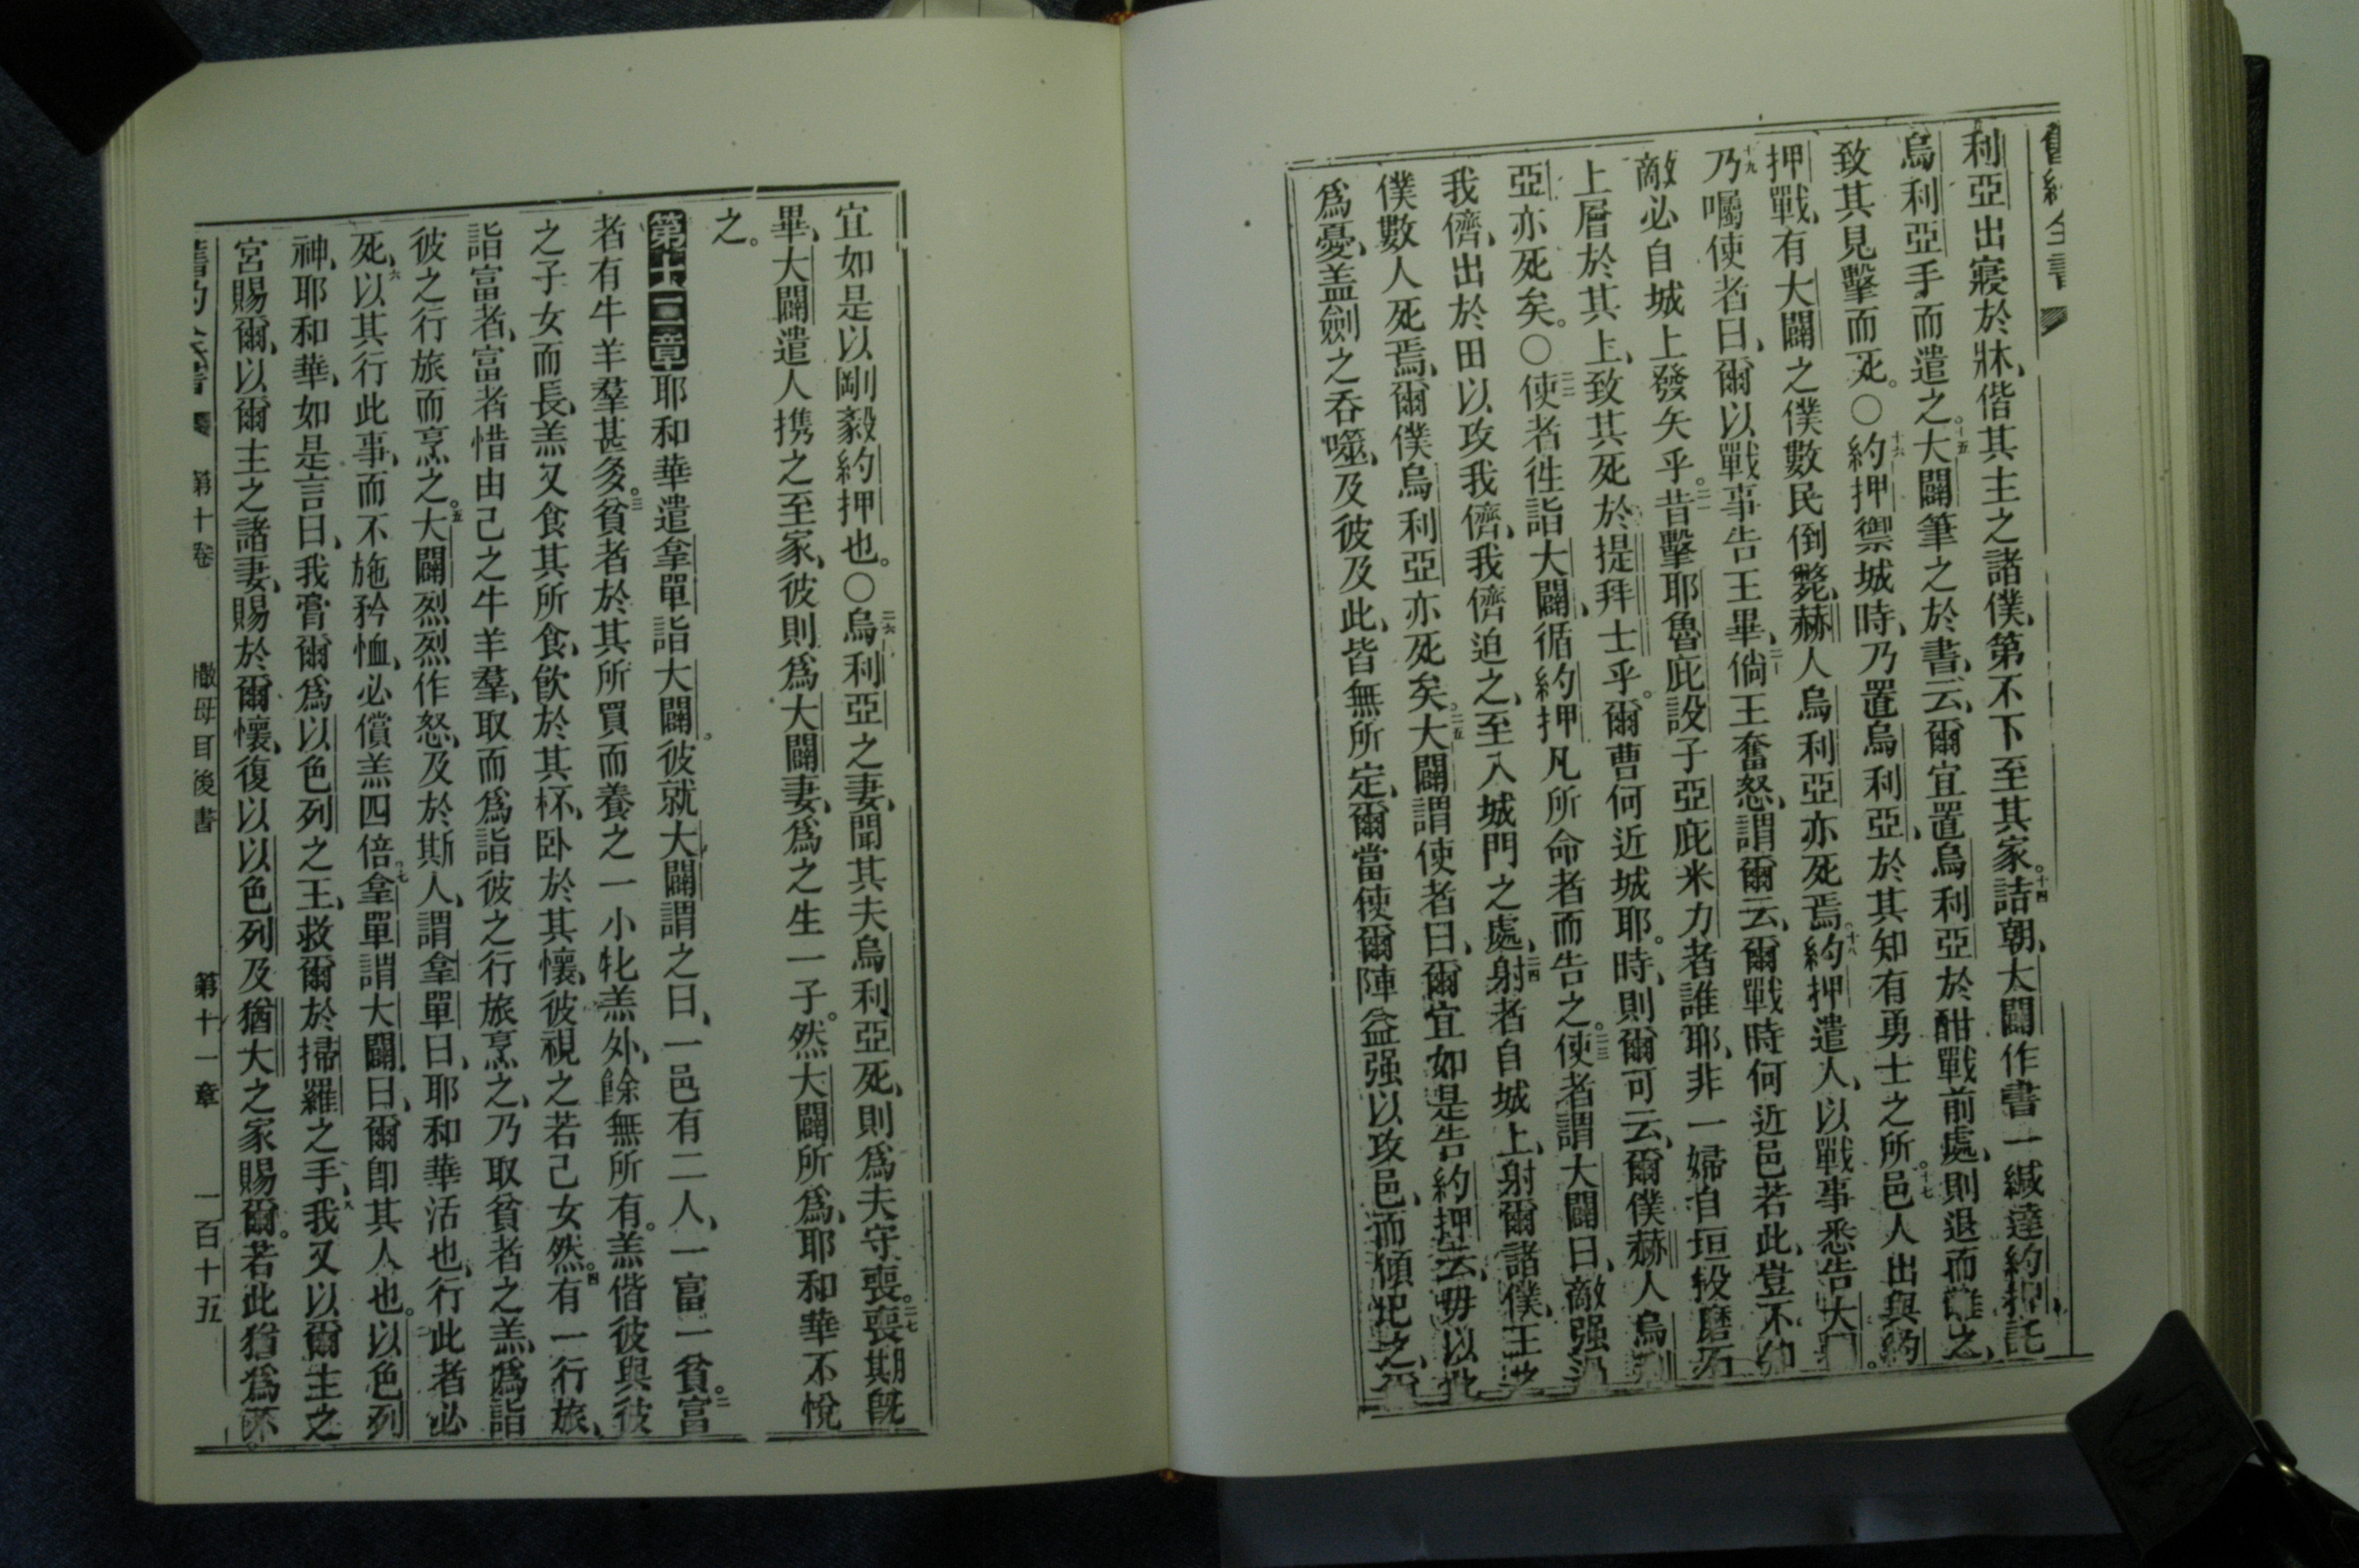 舊約全書
利亞出寢於牀、偕其主之諸僕、第不下至其家。十四詰朝、大闢作書一緘達約押、託
烏利亞手而遣之。十五大闢筆之於書、云、爾宜置烏利亞於酣戰前處、則退而離之、
致其見擊而死。〇十六約押禦城時、乃置烏利亞、於其知有勇士之所。十七邑人出與約
押戰、有大闢之僕數民倒斃、赫人烏利亞亦死焉。十八約押遣人、以戰事悉告大闢。
十九乃囑使者曰、爾以戰事告王畢、二十倘王奮怒、謂爾云、爾戰時何近邑若此、豈不知
敵必自城上發矢乎。二一昔擊耶魯庇設子亞庇米力者誰耶、非一婦自垣投磨石
上層於其上、致其死於提拜士乎。爾曹何近城耶。時、則爾可云、爾僕赫人烏利
亞亦死矣。〇二二使者徃詣大闢、循約押凡所命者而告之。二三使者謂大闢曰、敵强過
我儕、出於田以攻我儕、我儕迫之、至入城門之處、二四射者自城上、射爾諸僕、王之
僕數人死焉、爾僕烏利亞亦死矣。二五大闢謂使者曰、爾宜如是告約押云、毋以此
爲憂、盖劍之吞噬、及彼及此、皆無所定、爾當使爾陣益强以攻邑、而傾圯之、爾
宜如是以剛毅約押也。〇二六烏利亞之妻、聞其夫烏利亞死、則爲夫守喪。二七喪期旣
畢、大闢遣人携之至家、彼則爲大闢妻、爲之生一子。然大闢所爲、耶和華不悅
之。
第十二章耶和華遣拿單詣大闢。彼就大闢謂之曰、一邑有二人、一富一貧。二富
者有牛羊羣甚多。三貧者於其所買而養之一小牝羔外、餘無所有。羔偕彼與彼
之子女而長、羔又食其所食、飮於其杯、卧於其懷、彼視之若己女然。四有一行旅、
詣富者、富者惜由己之牛羊羣、取而爲詣彼之行旅烹之、乃取貧者之羔、爲詣
彼之行旅而烹之。五大闢烈烈作怒、及於斯人、謂拿單曰、耶和華活也、行此者必
死、六以其行此事、而不施矜恤、必償羔四倍。七拿單謂大闢、曰、爾卽其人也。以色列
神、耶和華、如是言曰、我膏爾爲以色列之王、救爾於掃羅之手、八我又以爾主之
宮賜爾、以爾主之諸妻、賜於爾懷、復以以色列及猶大之家賜爾。若此猶爲不
舊約全書 第十卷 撒母耳後書 第十一章 一百十五